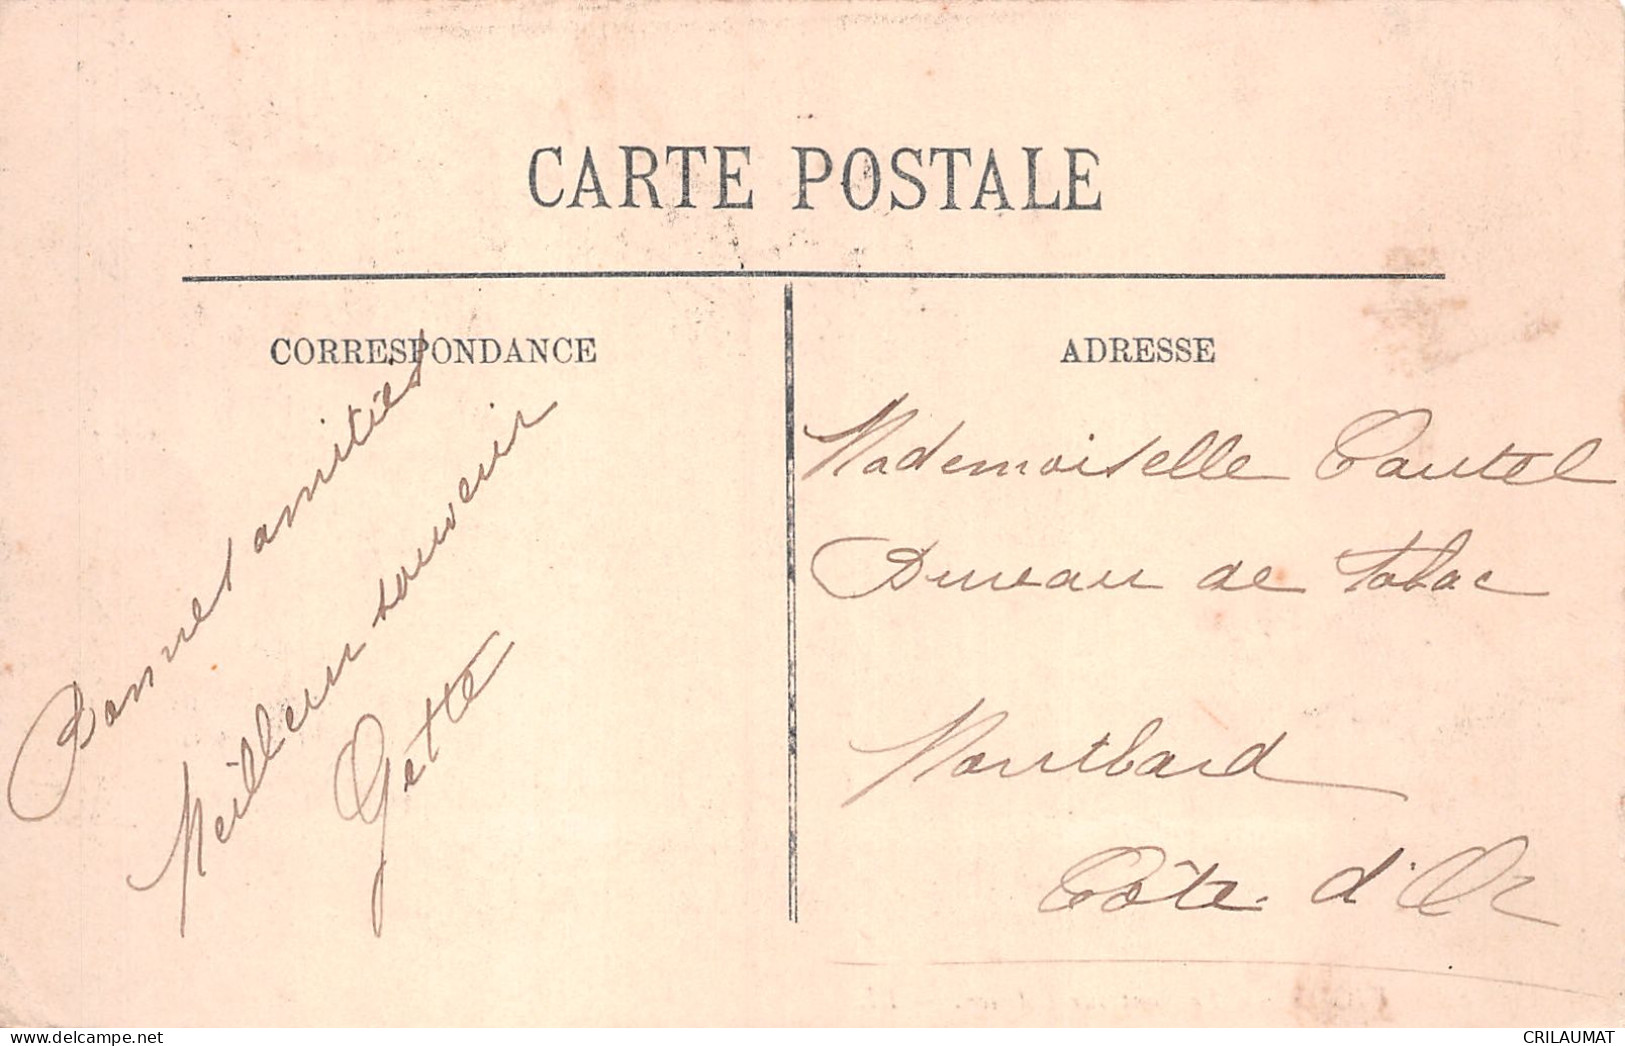 CARTE POSTALE
CORRESPONDANCE
Bonnes amitiés
Meilleur souvenir
Gette
ADRESSE
Mademoiselle Cautel
Bureau de Tabac
Montbard
Côte d'Or
CRILAUMAT